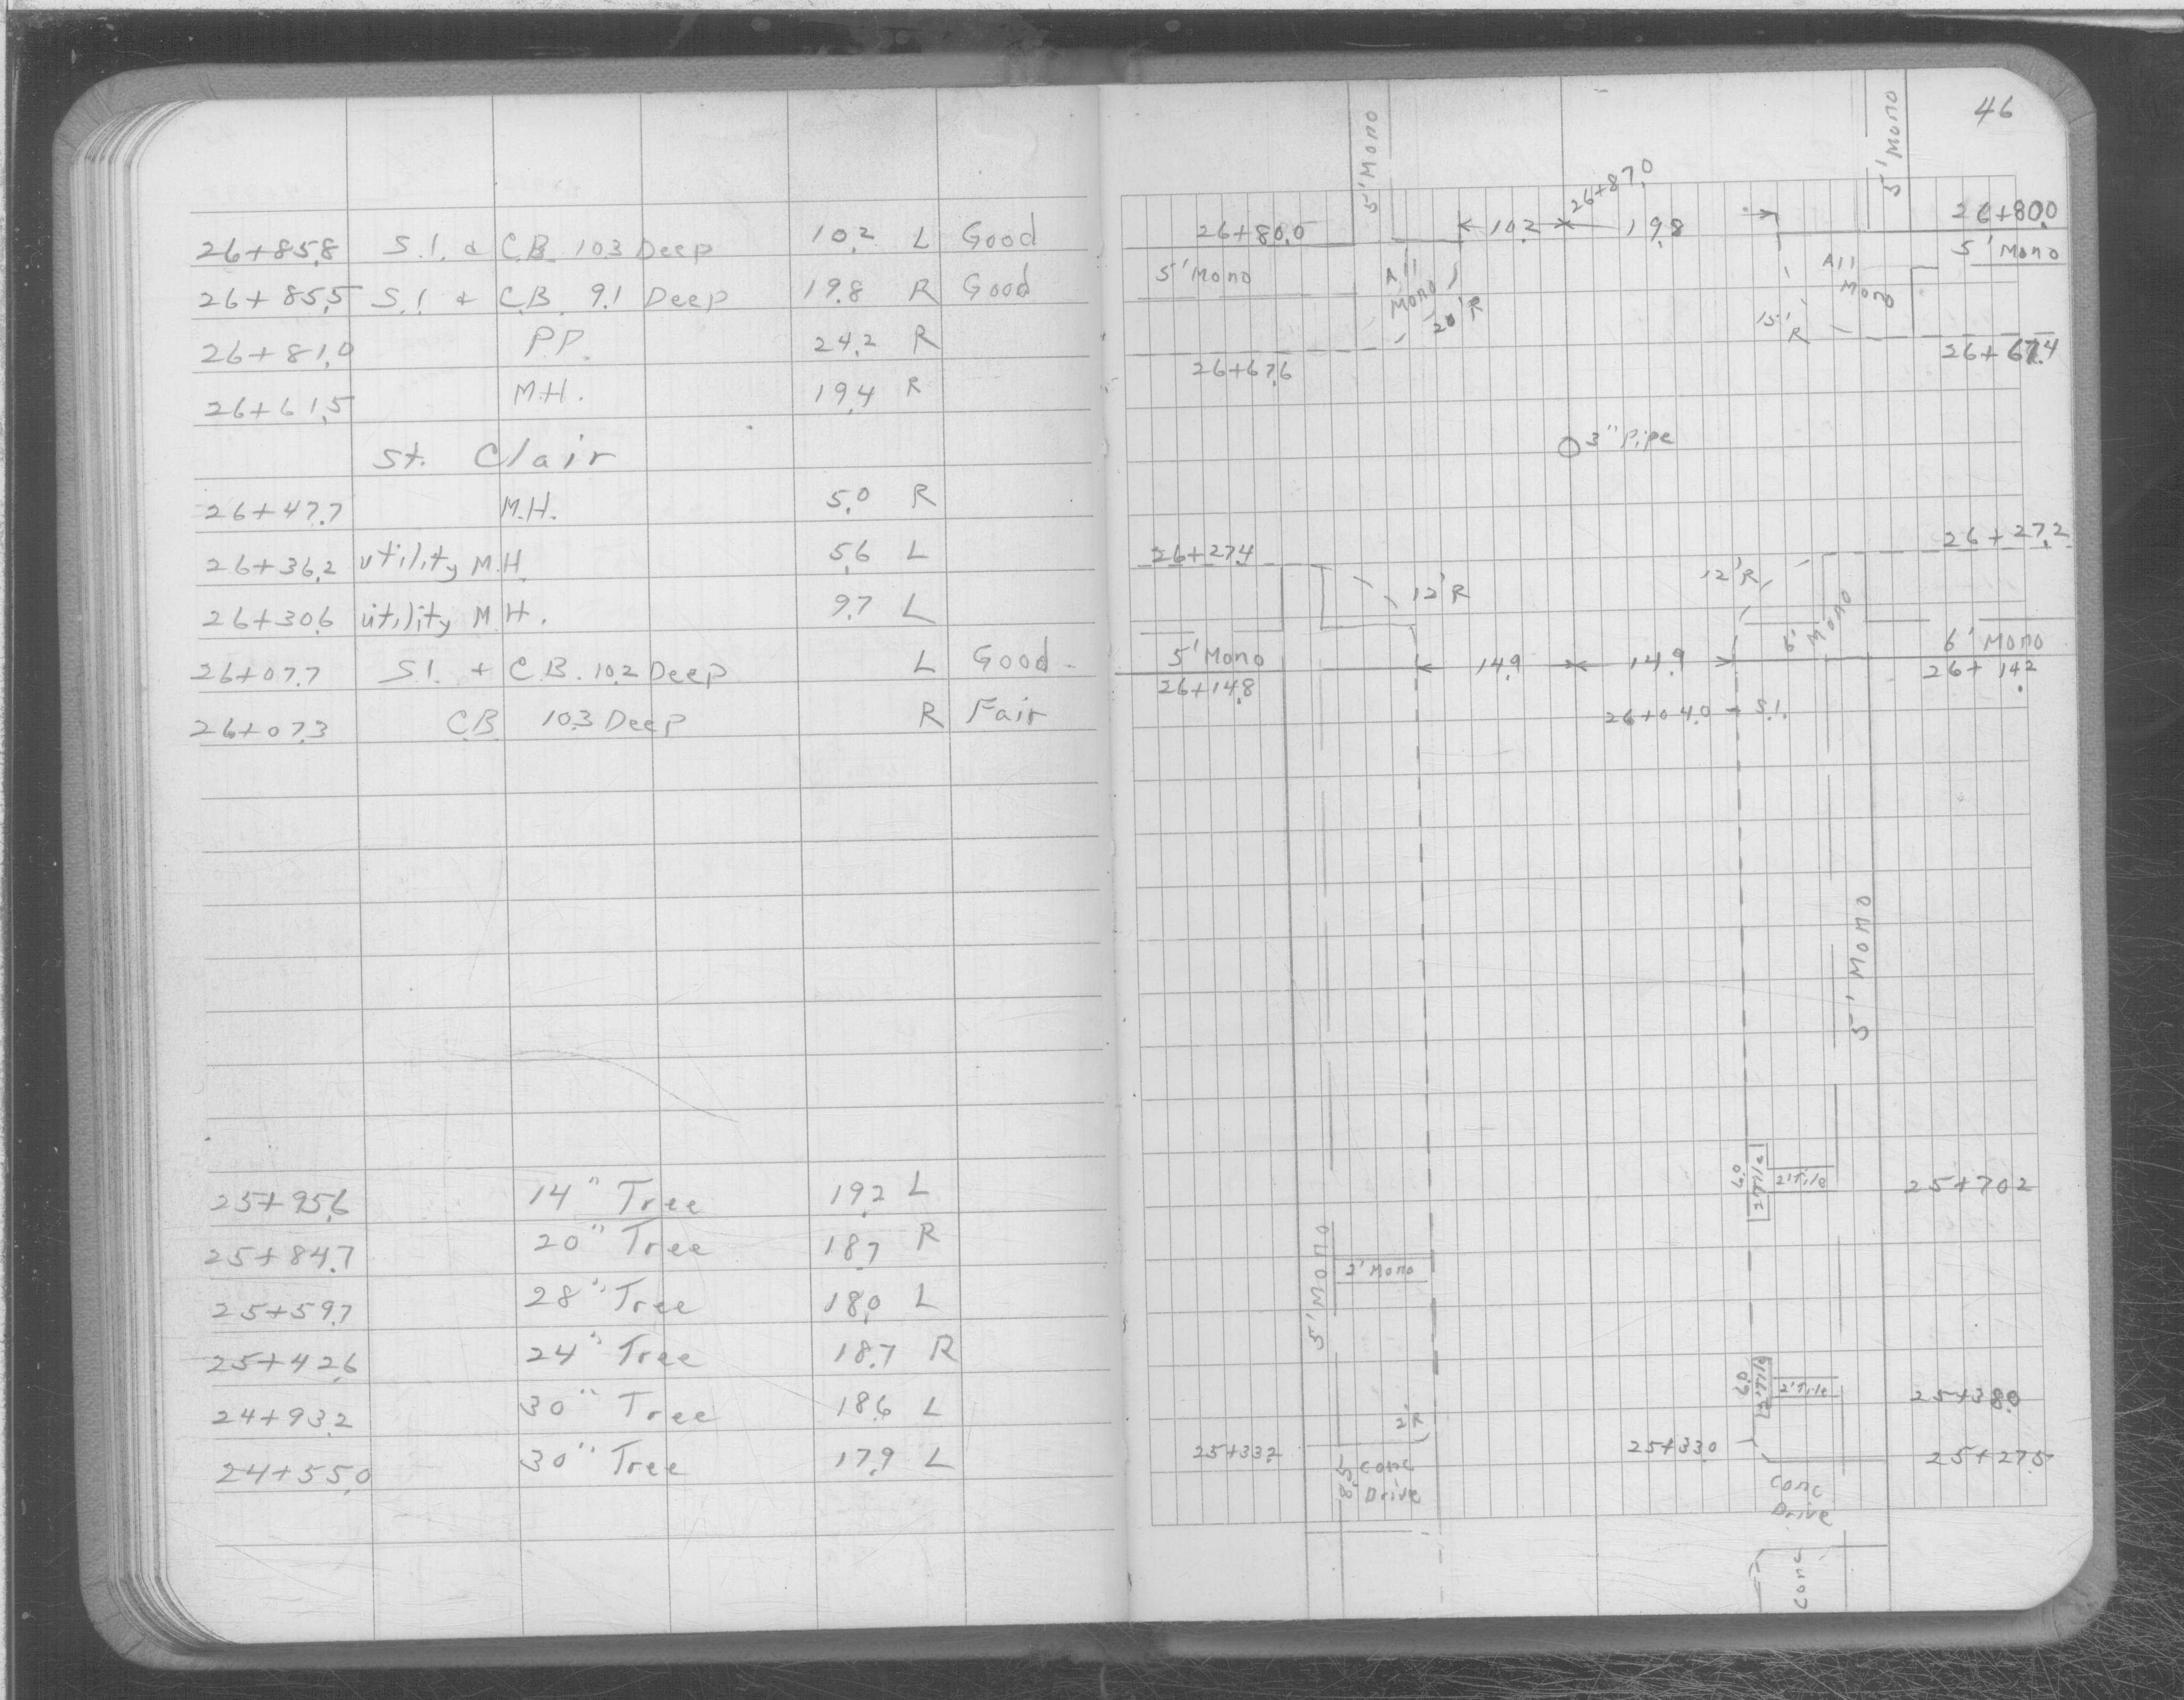 26+85.8 S.I. & C.B. 10.3 Deep 10.2 L Good
26+85.5 S.I. + C.B. 9.1 Deep 19.8 R Good
26+81.0 P.P. 24.2 R
26+61.5 M.H. 19.4 R
St. Clair
26+47.7 M.H. 5.0 R
26+36.2 utility M.H. 5.6 L
26+30.6 utility M.H. 9.7 L
26+07.7 S.I. + C.B. 10.2 Deep L Good
26+07.3 C.B. 10.3 Deep R Fair
25+95.6 14" Tree 19.2 L
25+84.7 20" Tree 18.7 R
25+59.7 28" Tree 18.0 L
25+42.6 24" Tree 18.7 R
24+93.2 30" Tree 18.6 L
24+55.0 30" Tree 17.9 L
46
5' Mono
5' Mono
26+87.0
26+80.0 10.2 19.8 26+80.0
5' Mono All Mono All Mono 5' Mono
20' R 15' R
26+67.6 26+67.4
3" Pipe
26+27.4 26+27.2
12' R 12' R
6' Mono
5' Mono 14.9 14.9 6' Mono
26+14.8 26+14.2
26+04.0 - S.I.
5' Mono
6.0 2' Tile 2' Tile 25+70.2
5' Mono 2' Mono
6.0 2' Tile 2' Tile 25+38.0
2' R
25+33.2 25+33.0 25+27.5
8.5 Conc Drive Conc Drive
Conc